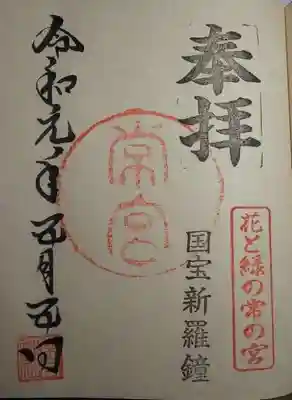 奉拝
花と緑の常の宮
国宝新羅鐘
常宮
令和元年五月五日